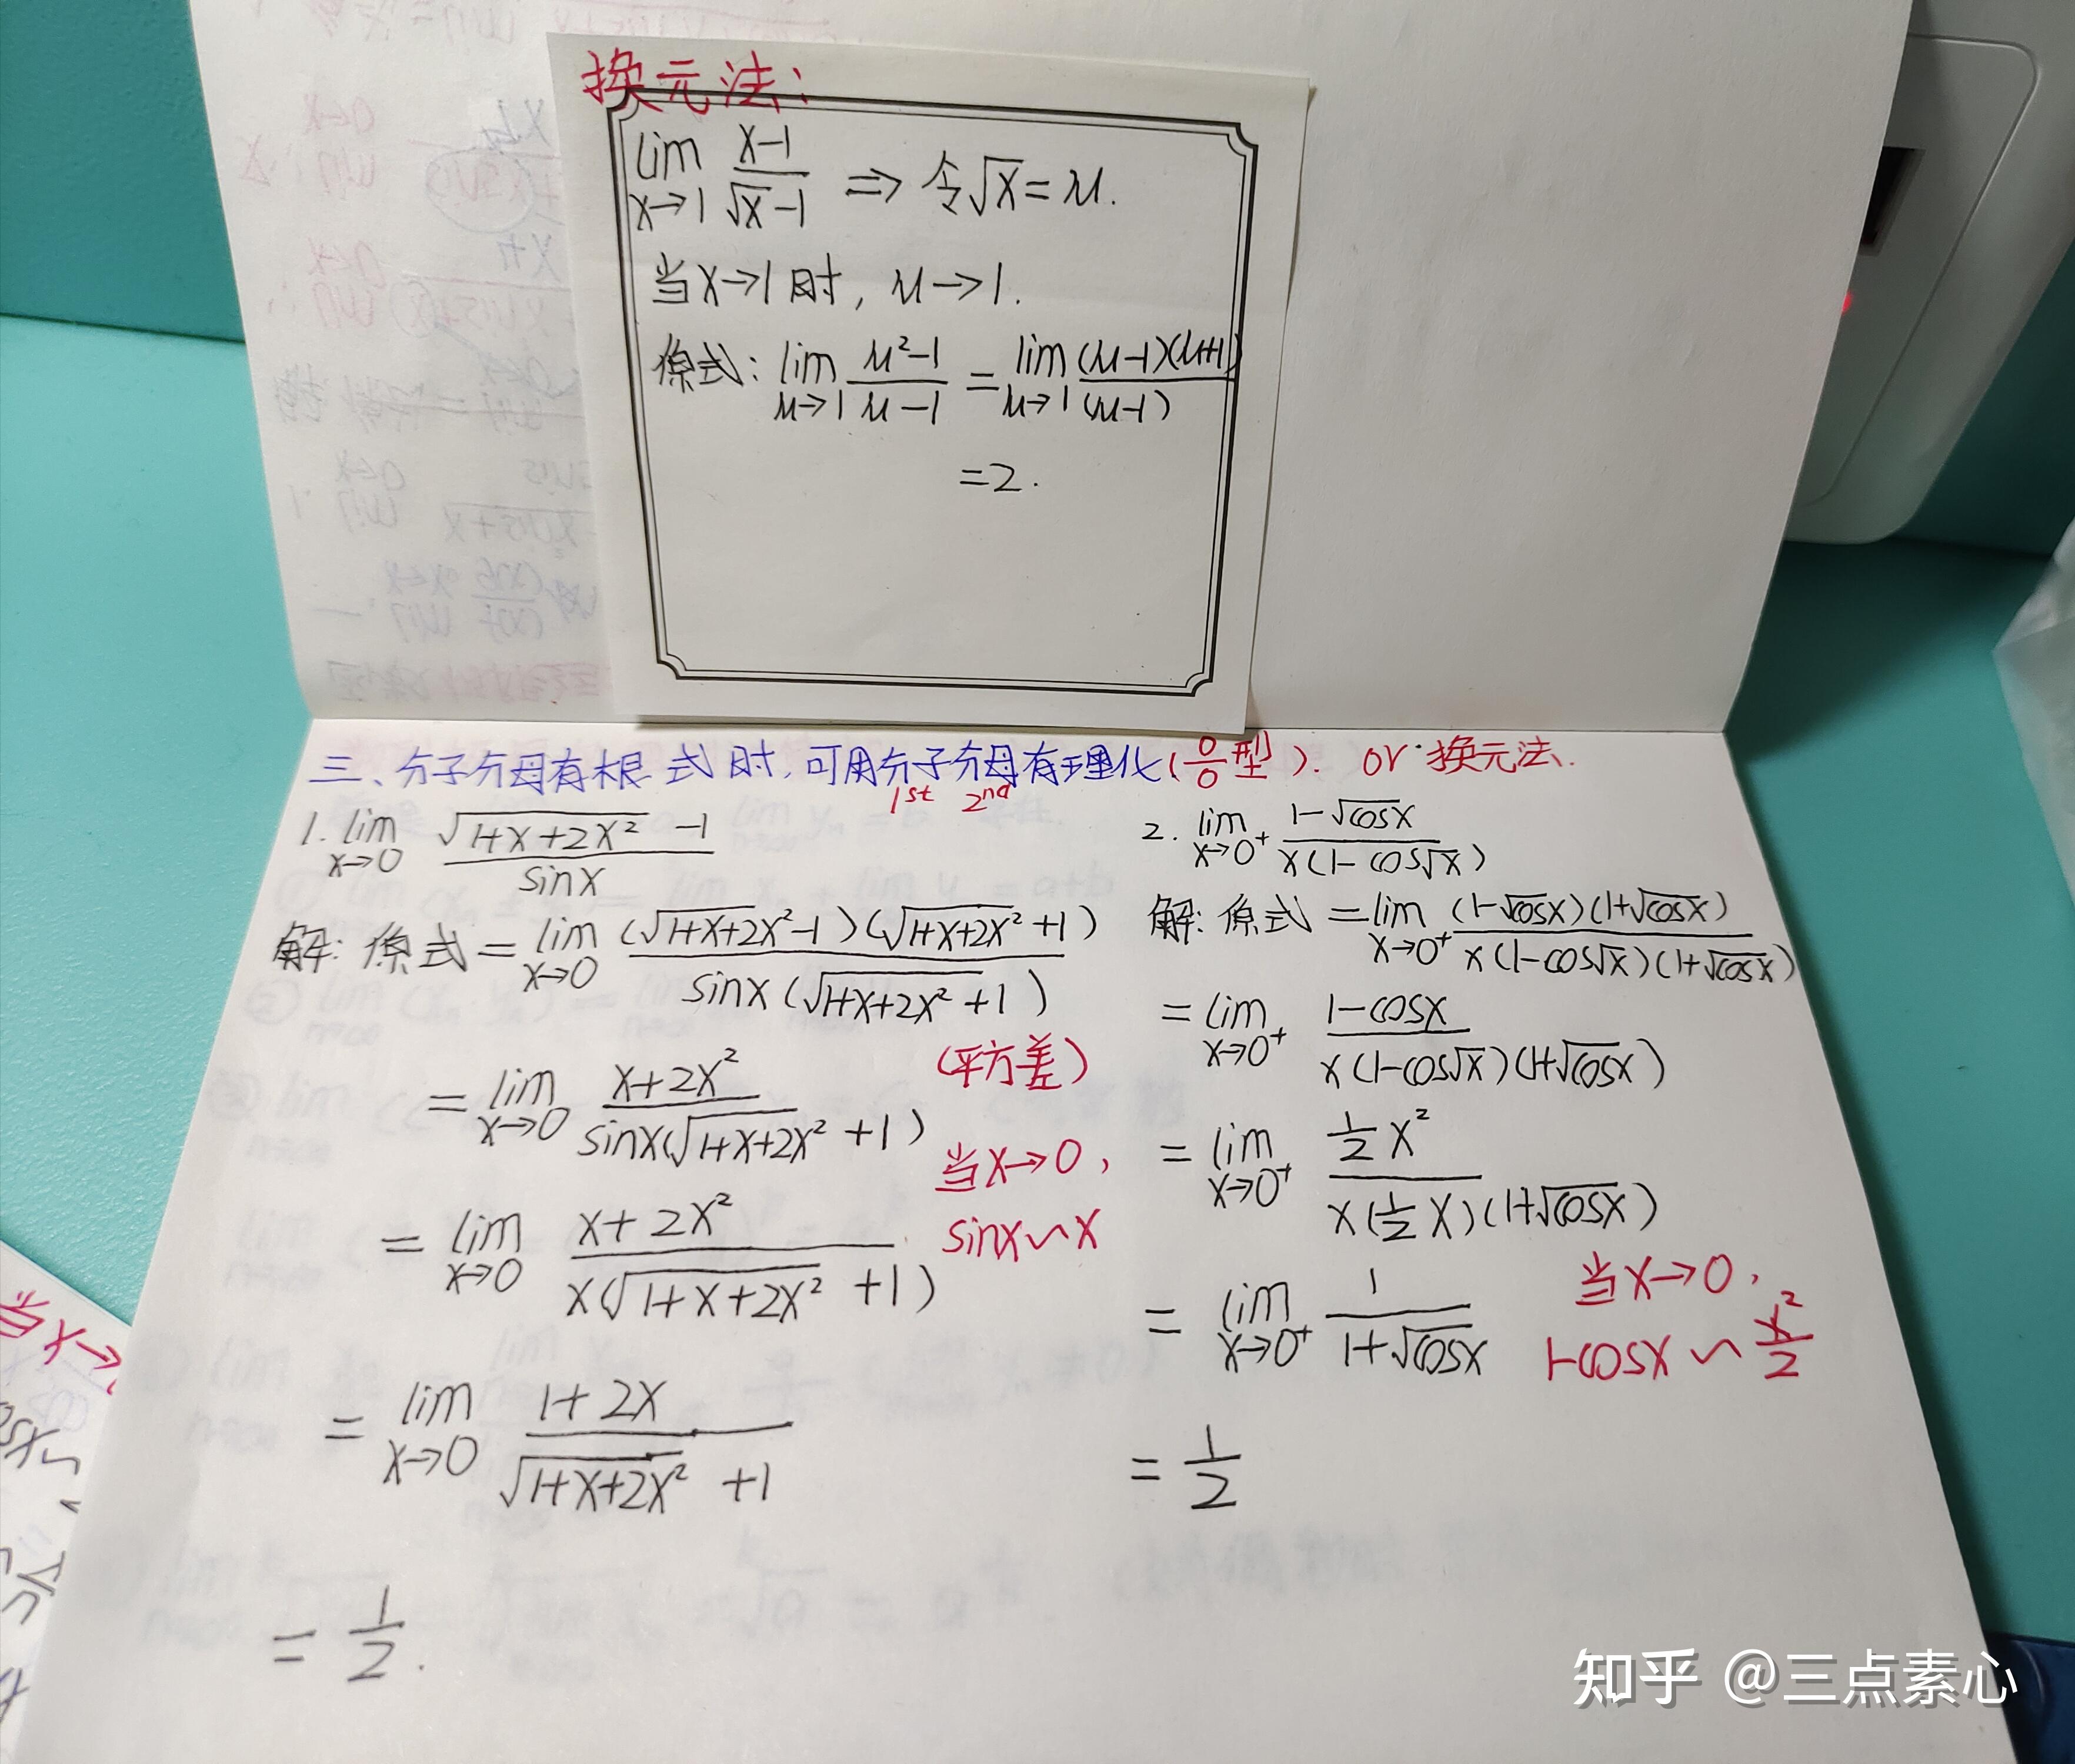 换元法:
lim x→1 (x-1)/(√x-1) ⇒ 令√x=u.
当x→1时, u→1.
原式: lim u→1 (u²-1)/(u-1) = lim u→1 (u-1)(u+1)/(u-1)
=2.
三、分子分母有根式时,可用分子分母有理化(0/0型). or 换元法.
1st 2nd
1. lim x→0 (√(1+x+2x²) -1)/sinx
解: 原式= lim x→0 (√(1+x+2x²)-1)(√(1+x+2x²)+1)/(sinx(√(1+x+2x²)+1))
(平方差)
= lim x→0 (x+2x²)/(sinx(√(1+x+2x²)+1))
当x→0,
sinx∽x
= lim x→0 (x+2x²)/(x(√(1+x+2x²)+1))
= lim x→0 (1+2x)/(√(1+x+2x²)+1)
= 1/2.
2. lim x→0⁺ (1-√cosx)/(x(1-cos√x))
解: 原式= lim x→0⁺ (1-√cosx)(1+√cosx)/(x(1-cos√x)(1+√cosx))
= lim x→0⁺ (1-cosx)/(x(1-cos√x)(1+√cosx))
= lim x→0⁺ (1/2 x²)/(x(1/2 x)(1+√cosx))
= lim x→0⁺ 1/(1+√cosx)
当x→0,
1-cosx ∽ x²/2
= 1/2
当x→
知乎 @三点素心